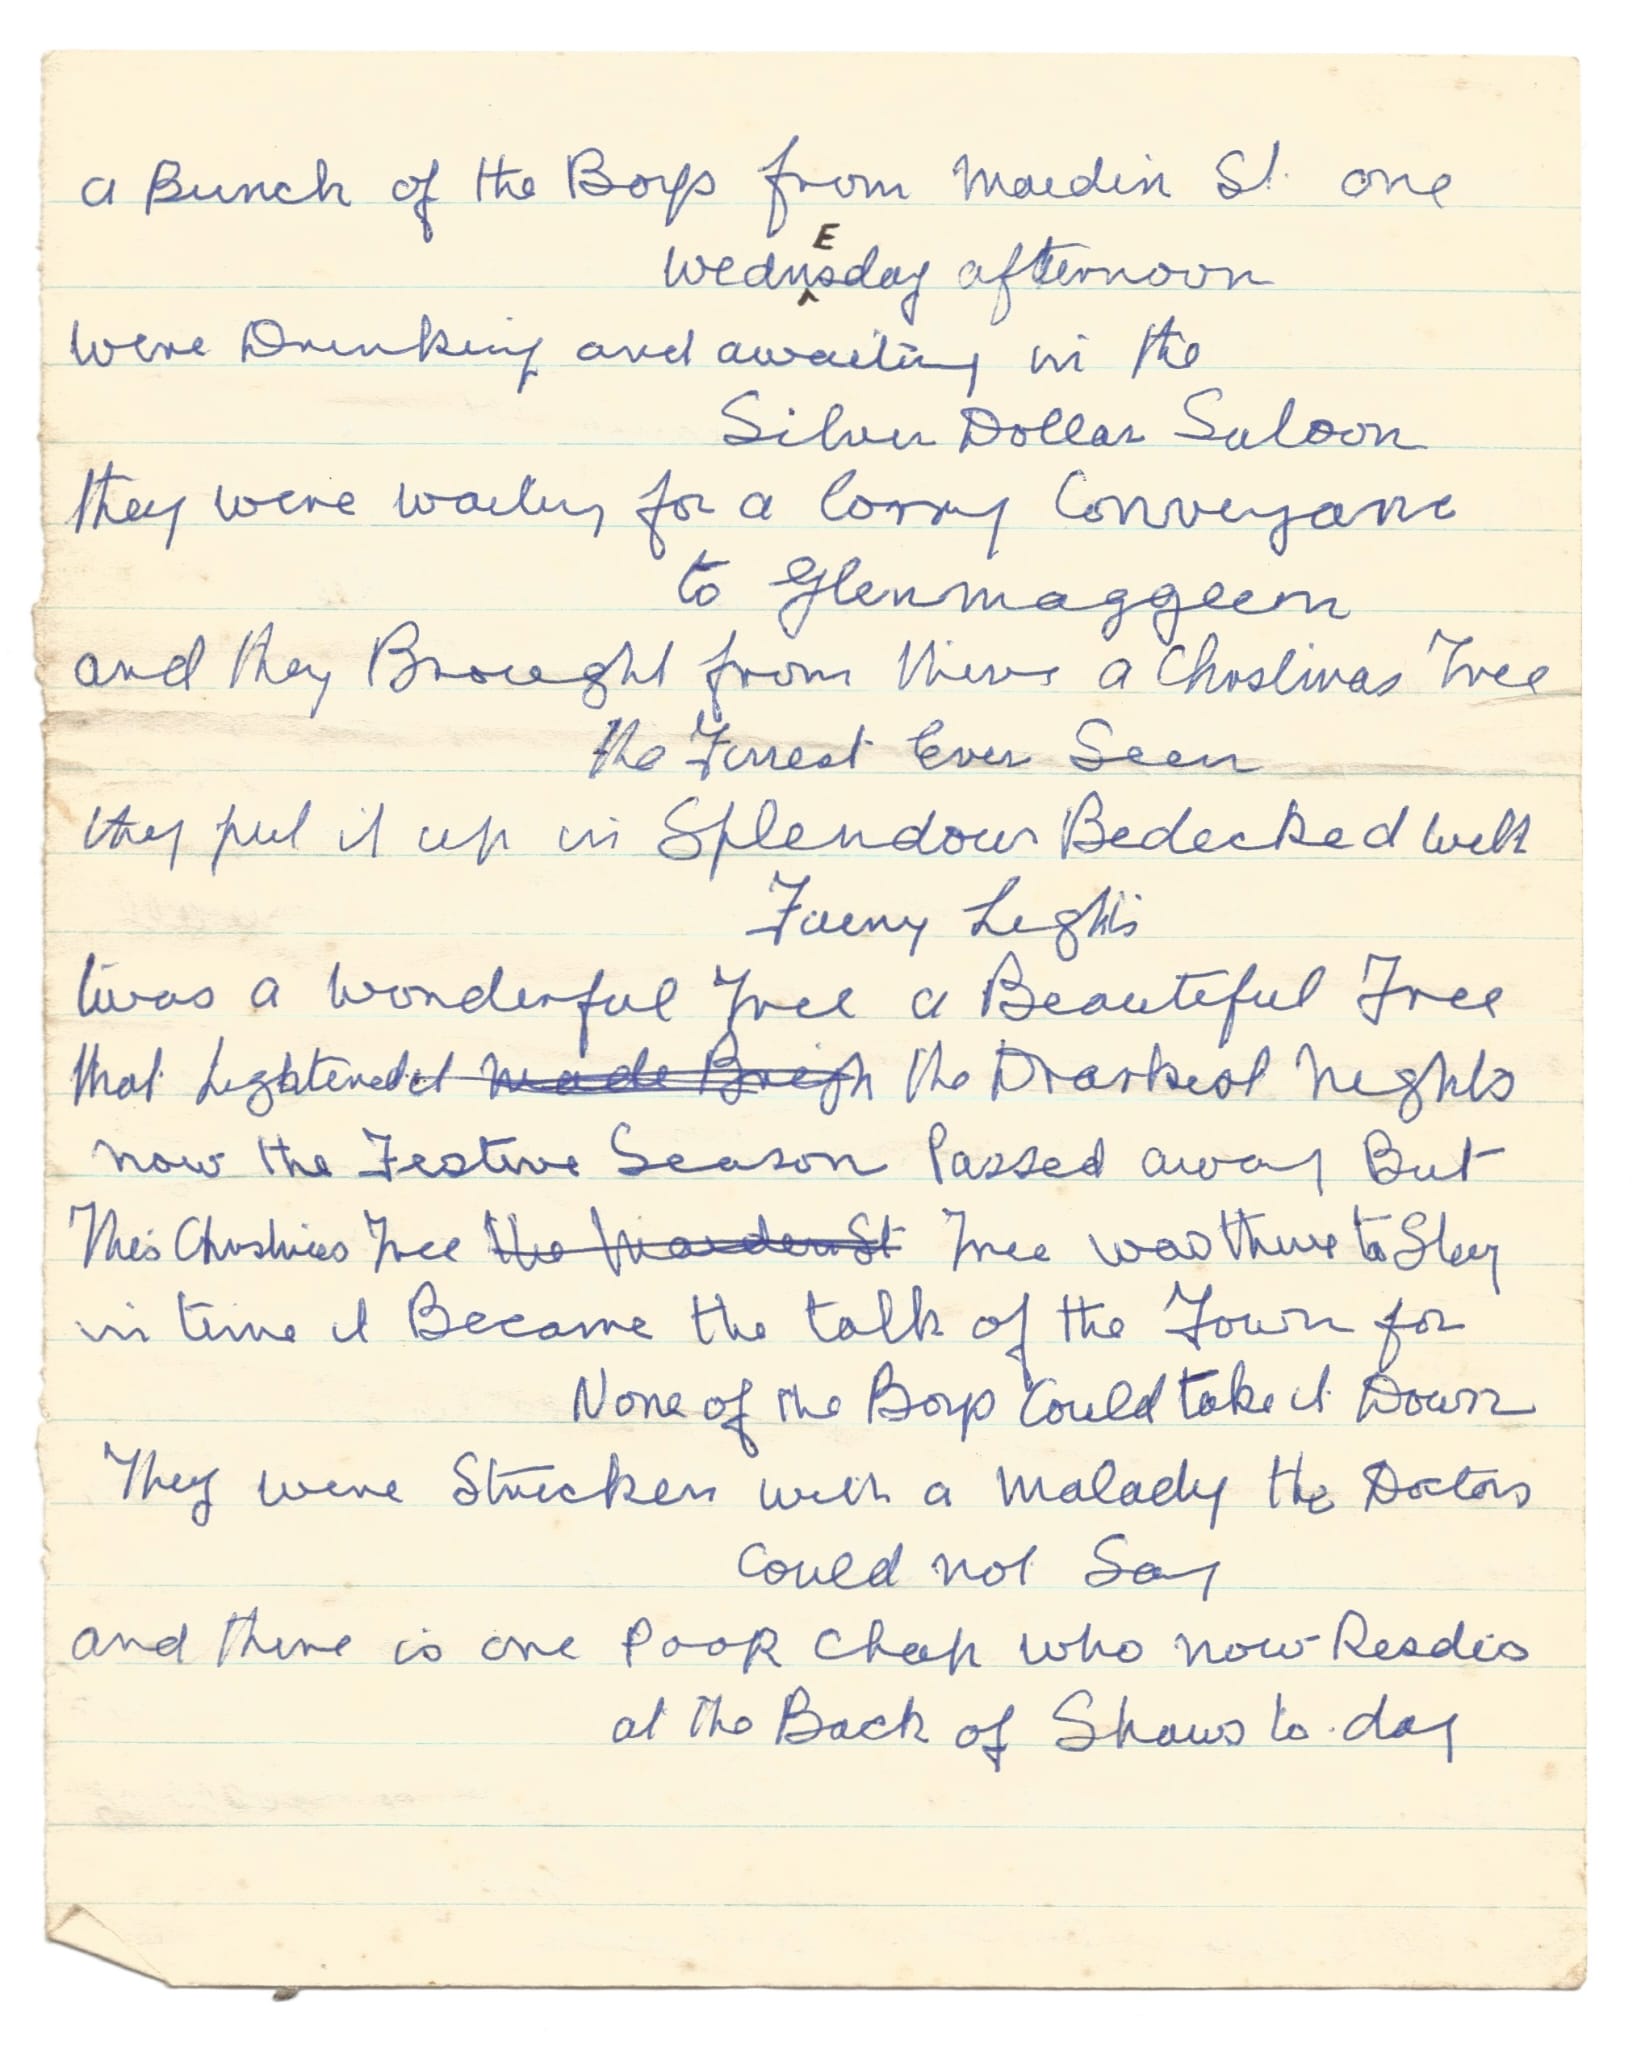 a Bunch of the Boys from Maidin St. one
WednEsday afternoon
were Drinking and awaiting in the
Silver Dollar Saloon
they were waiting for a lorry Conveyanc
to Glenmaggeen
and they Brought from there a Christmas Tree
the Finest Ever Seen
they put it up in Splendour Bedecked with
Faery Lights
twas a wonderful Tree a Beautiful Tree
that Lightened it made Brigh the Drarkest Nights
now the Festive Season Passed away But
This Christmas Tree the Maiden St Tree was there to Stay
in time it Became the talk of the Town for
None of the Boys Could take it Down
They were Stricken with a Malady the Doctors
Could not Say
and there is one Poor Chap who now Resdis
at the Back of Shaws to.day